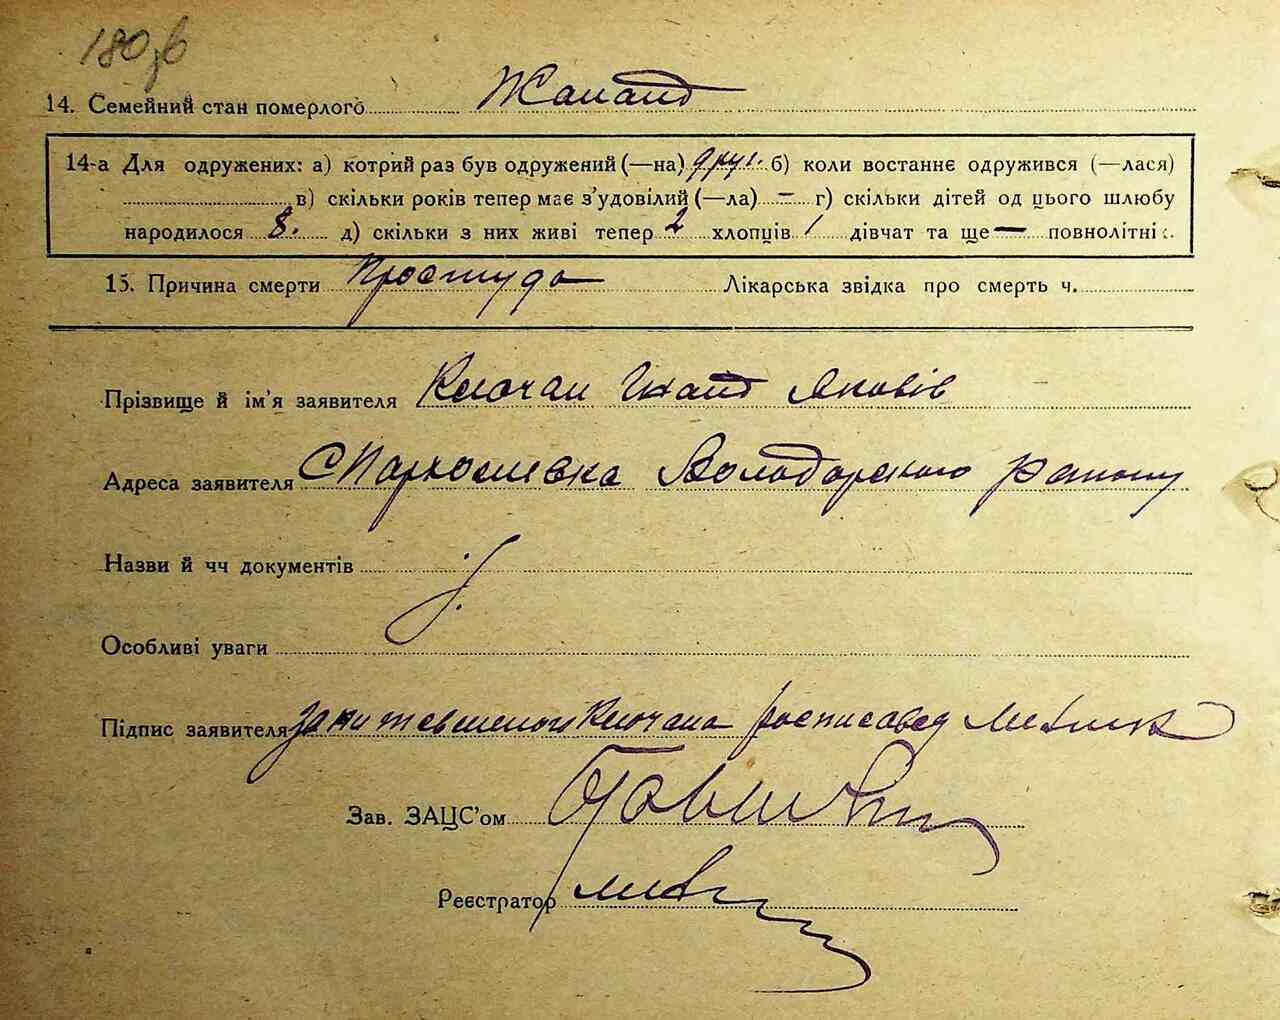 180 зв
14. Семейний стан померлого Жанат
14-а Для одружених: а) котрий раз був одружений (—на) друг. б) коли востаннє одружився (—лася)
в) скільки років тепер має з’удовілий (—ла) — г) скільки дітей од цього шлюбу
народилося 8. д) скільки з них живі тепер 2 хлопців 1 дівчат та ще — повнолітні:.
15. Причина смерти Простуда Лікарська звідка про смерть ч.
Прізвище й ім’я заявителя Ключан Гнат Яковів
Адреса заявителя С Пархомівка Володарского району
Назви й чч документів
Особливі уваги
Підпис заявителя Ключана росписавсь
Зав. ЗАЦС’ом
Реєстратор